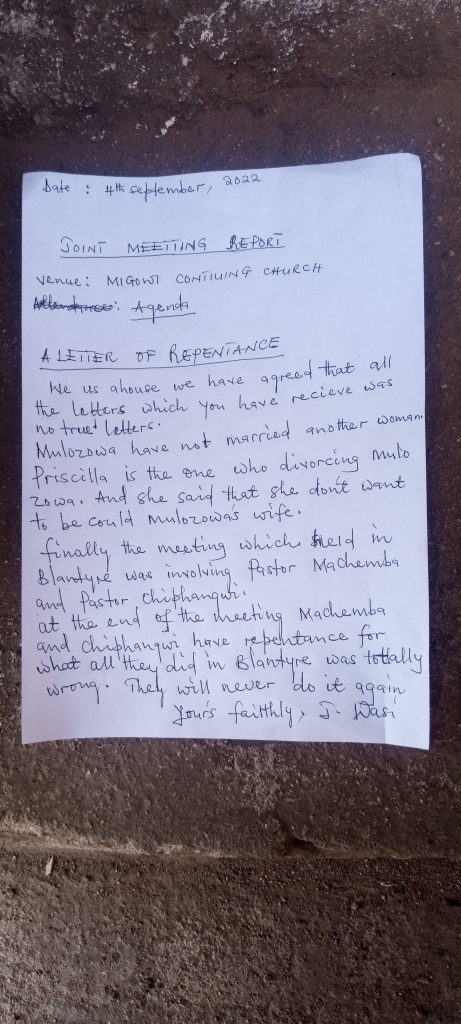 Date : 4th september, 2022
JOINT MEETTING REPORT
Venue: MIGOWI CONTIUING CHURCH
Attendance: Agenda
A LETTER OF REPENTANCE
We us ahouse we have agreed that all
the letters which you have recieve was
no true letters.
Mulozowa have not married another woman.
Priscilla is the one who divorcing Mulo
zowa. And she said that she don't want
to be could Mulozowa's wife.
finally the meeting which held in
Blantyre was involving Pastor Machemba
and Pastor Chiphangwi.
at the end of the meeting Machemba
and Chiphangwi have repentance for
what all they did in Blantyre was totally
wrong. They will never do it again
Your's faitthly, J. Wasi